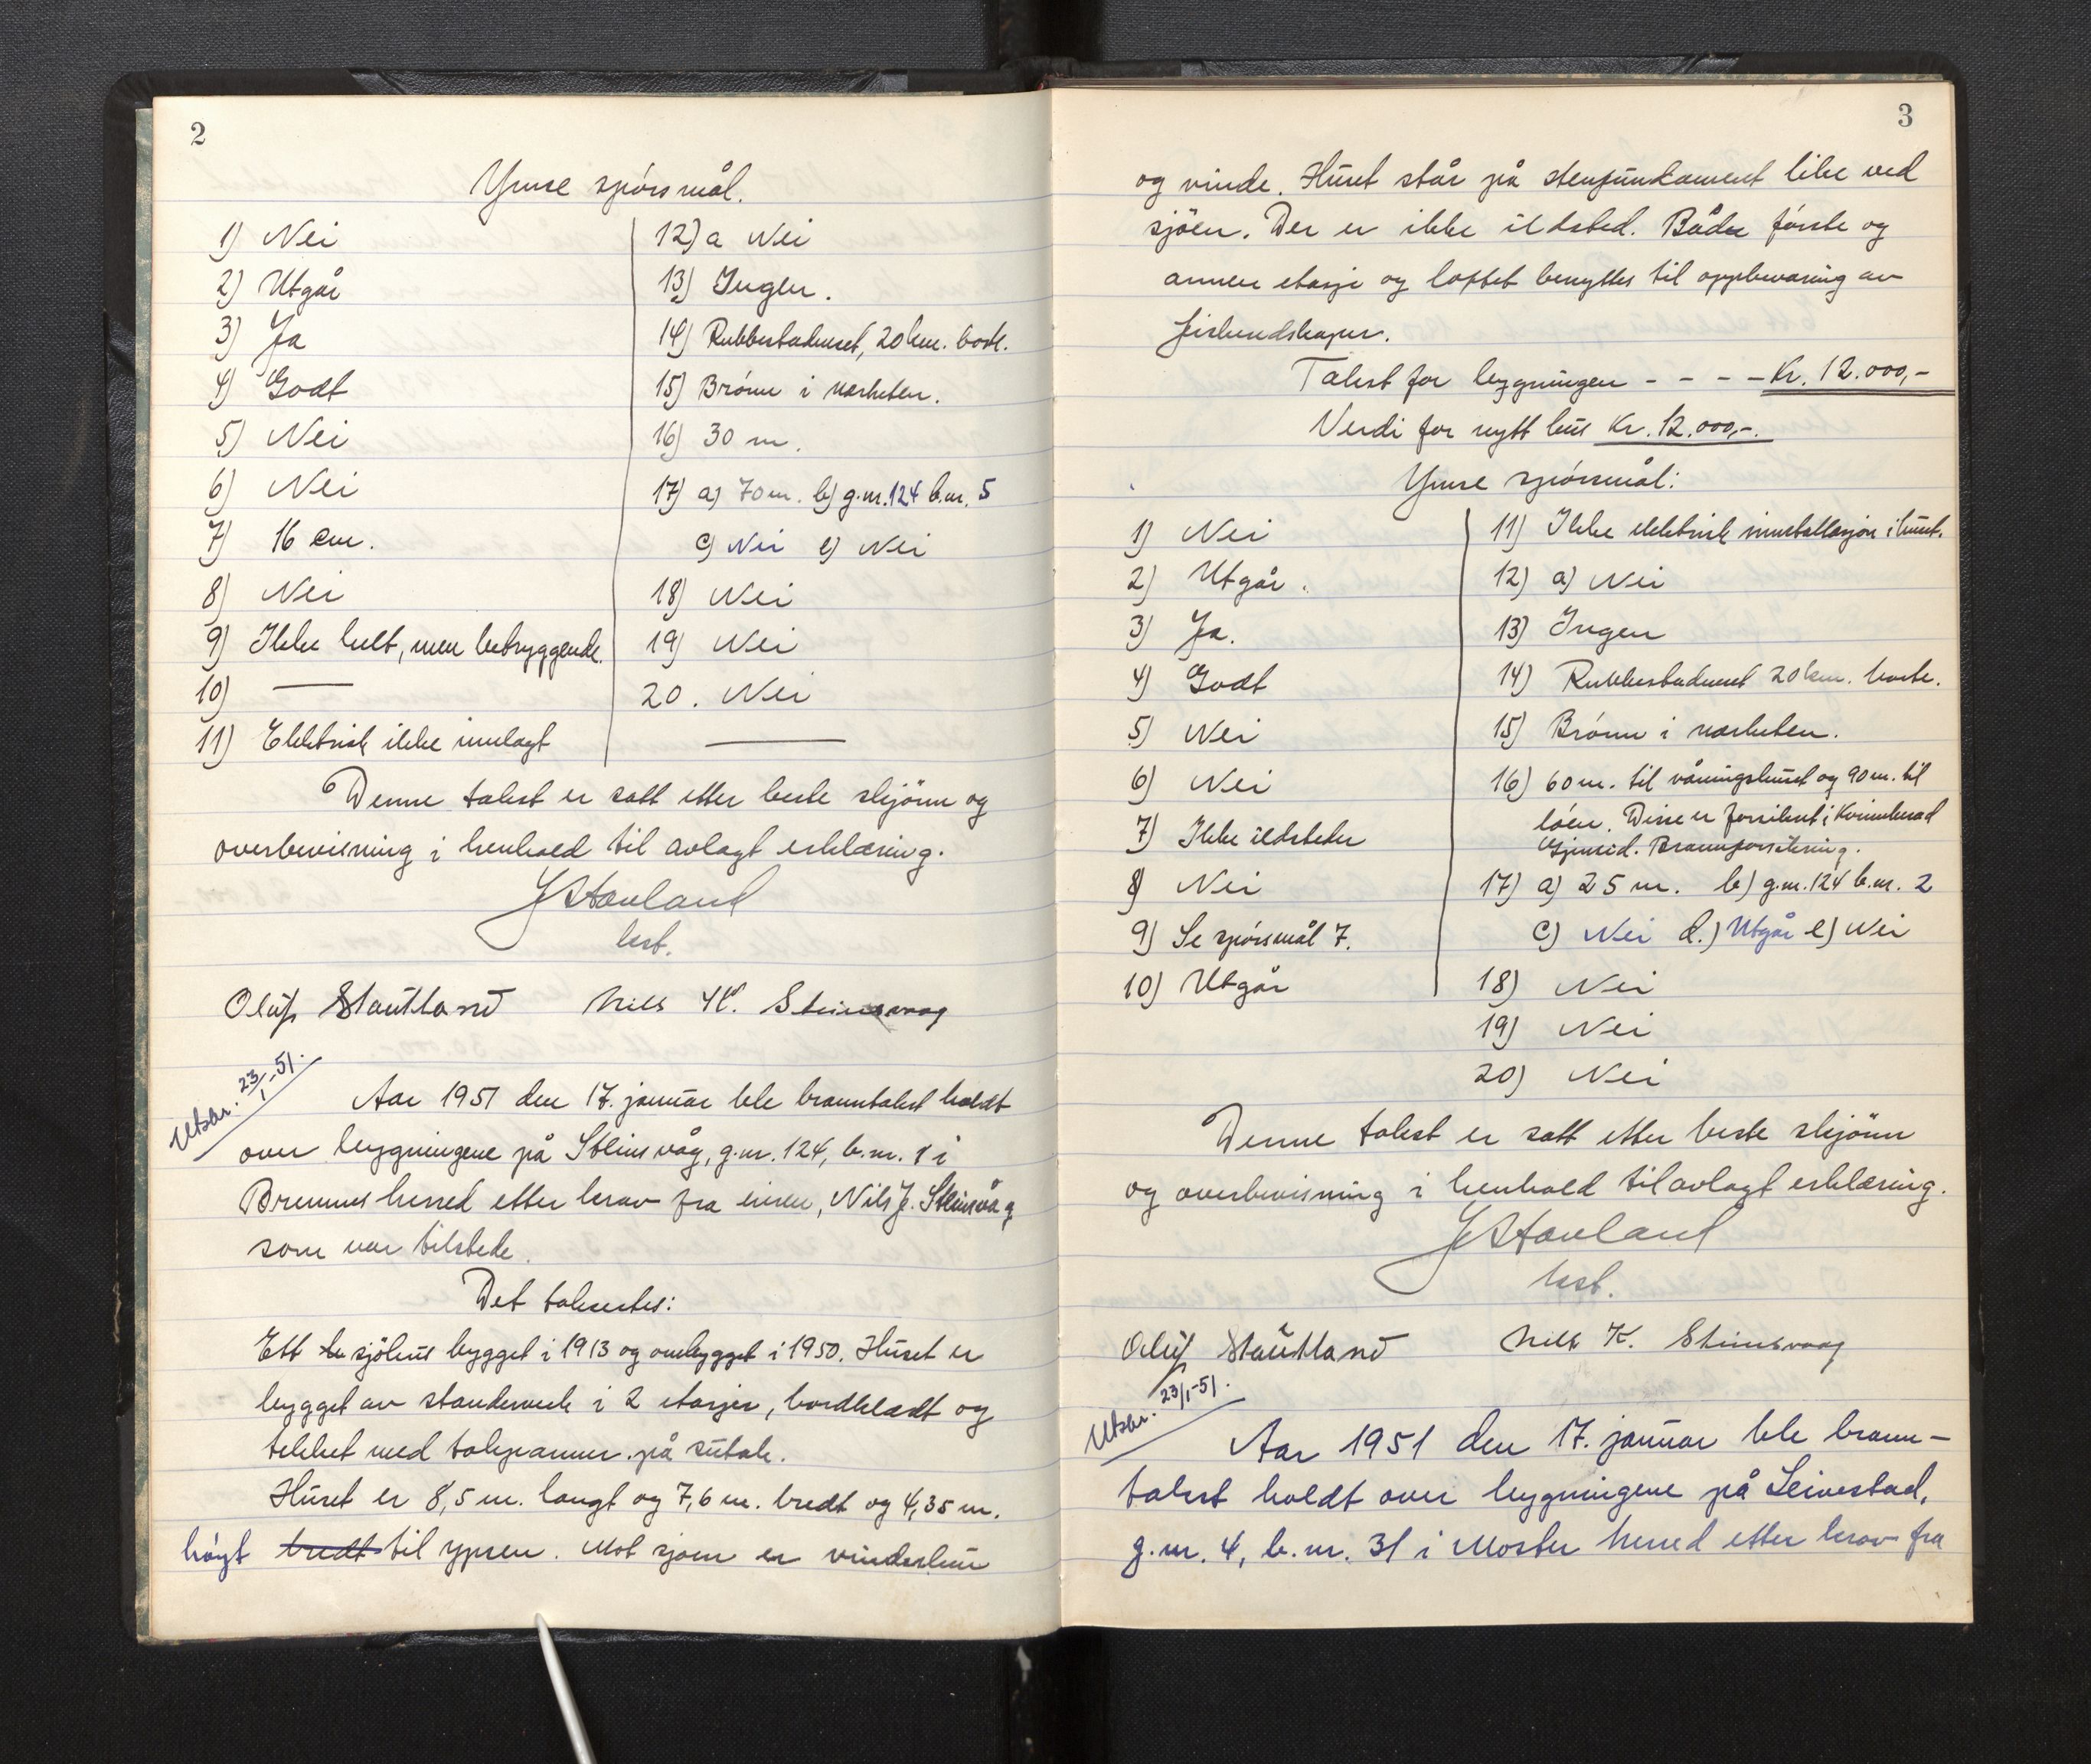 2
Ymse spörsmål.
1) Nei
2) Utgår
3) Ja
4) Godt
5) Nei
6) Nei
7) 16 cm.
8) Nei
9) Ikke helt, men betryggende.
10) —
11) Elektrisk ikke innlagt
12) a Nei
13) Ingen.
14) Rubbestadneset, 20 km. borte.
15) Brönn i nærheten.
16) 30 m.
17) a) 70 m. b) g.nr. 124 b.nr. 5
c) Nei e) Nei
18) Nei
19) Nei
20. Nei
Denne takst er satt etter beste skjönn og
overbevisning i henhold til avlagt erklæring.
J Stavland
lest.
Oluf Stautland Nils K. Steinsvaag
Utskr. 23/1-51.
Aar 1951 den 17. januar ble branntakst holdt
over bygningene på Steinsvåg, g.nr. 124, b.nr. 1 i
Bremnes herred etter krav fra eieren, Nils J. Steinsvåg
som var tilstede.
Det takseres:
Ett sjöhus bygget i 1913 og ombygget i 1950. Huset er
bygget av standerverk i 2 etasjer, bordkledt og
tekket med takpanner på sutak.
Huset er 8,5 m. langt og 7,6 m. bredt og 4,35 m.
höyt bredt til ypsen. Mot sjöen er vindeskur
3
og vinde. Huset står på stenfundament like ved
sjöen. Der er ikke ildsted. Både förste og
annen etasje og loftet benyttes til oppbevaring av
fiskeredskaper.
Takst for bygningen - - - - Kr. 12.000,-
Verdi for nytt hus Kr. 12.000,-.
Ymse spörsmål:
1) Nei
2) Utgår.
3) Ja.
4) Godt
5) Nei
6) Nei
7) Ikke ildsteder
8) Nei
9) Se spörsmål 7.
10) Utgår
11) Ikke elektrisk innstallasjon i huset.
12) a) Nei
13) Ingen
14) Rubbestadneset 20 km. borte.
15) Brönn i nærheten.
16) 60 m. til våningshuset og 90 m. til
löen. Disse er forsikret i Kvinnherad
Gjensid. Brannforsikring.
17) a) 25 m. b) g.nr. 124 b.nr. 2
c) Nei d.) Utgår e) Nei
18) Nei
19) Nei
20) Nei
Denne takst er satt etter beste skjönn
og overbevisning i henhold til avlagt erklæring.
J Stavland
lest.
Oluf Stautland Nils K. Steinsvaag
Utskr. 23/1-51.
Aar 1951 den 17. januar ble brann-
takst holdt over bygningene på Leivestad,
g.nr. 4, b.nr. 31 i Moster herred etter krav fra